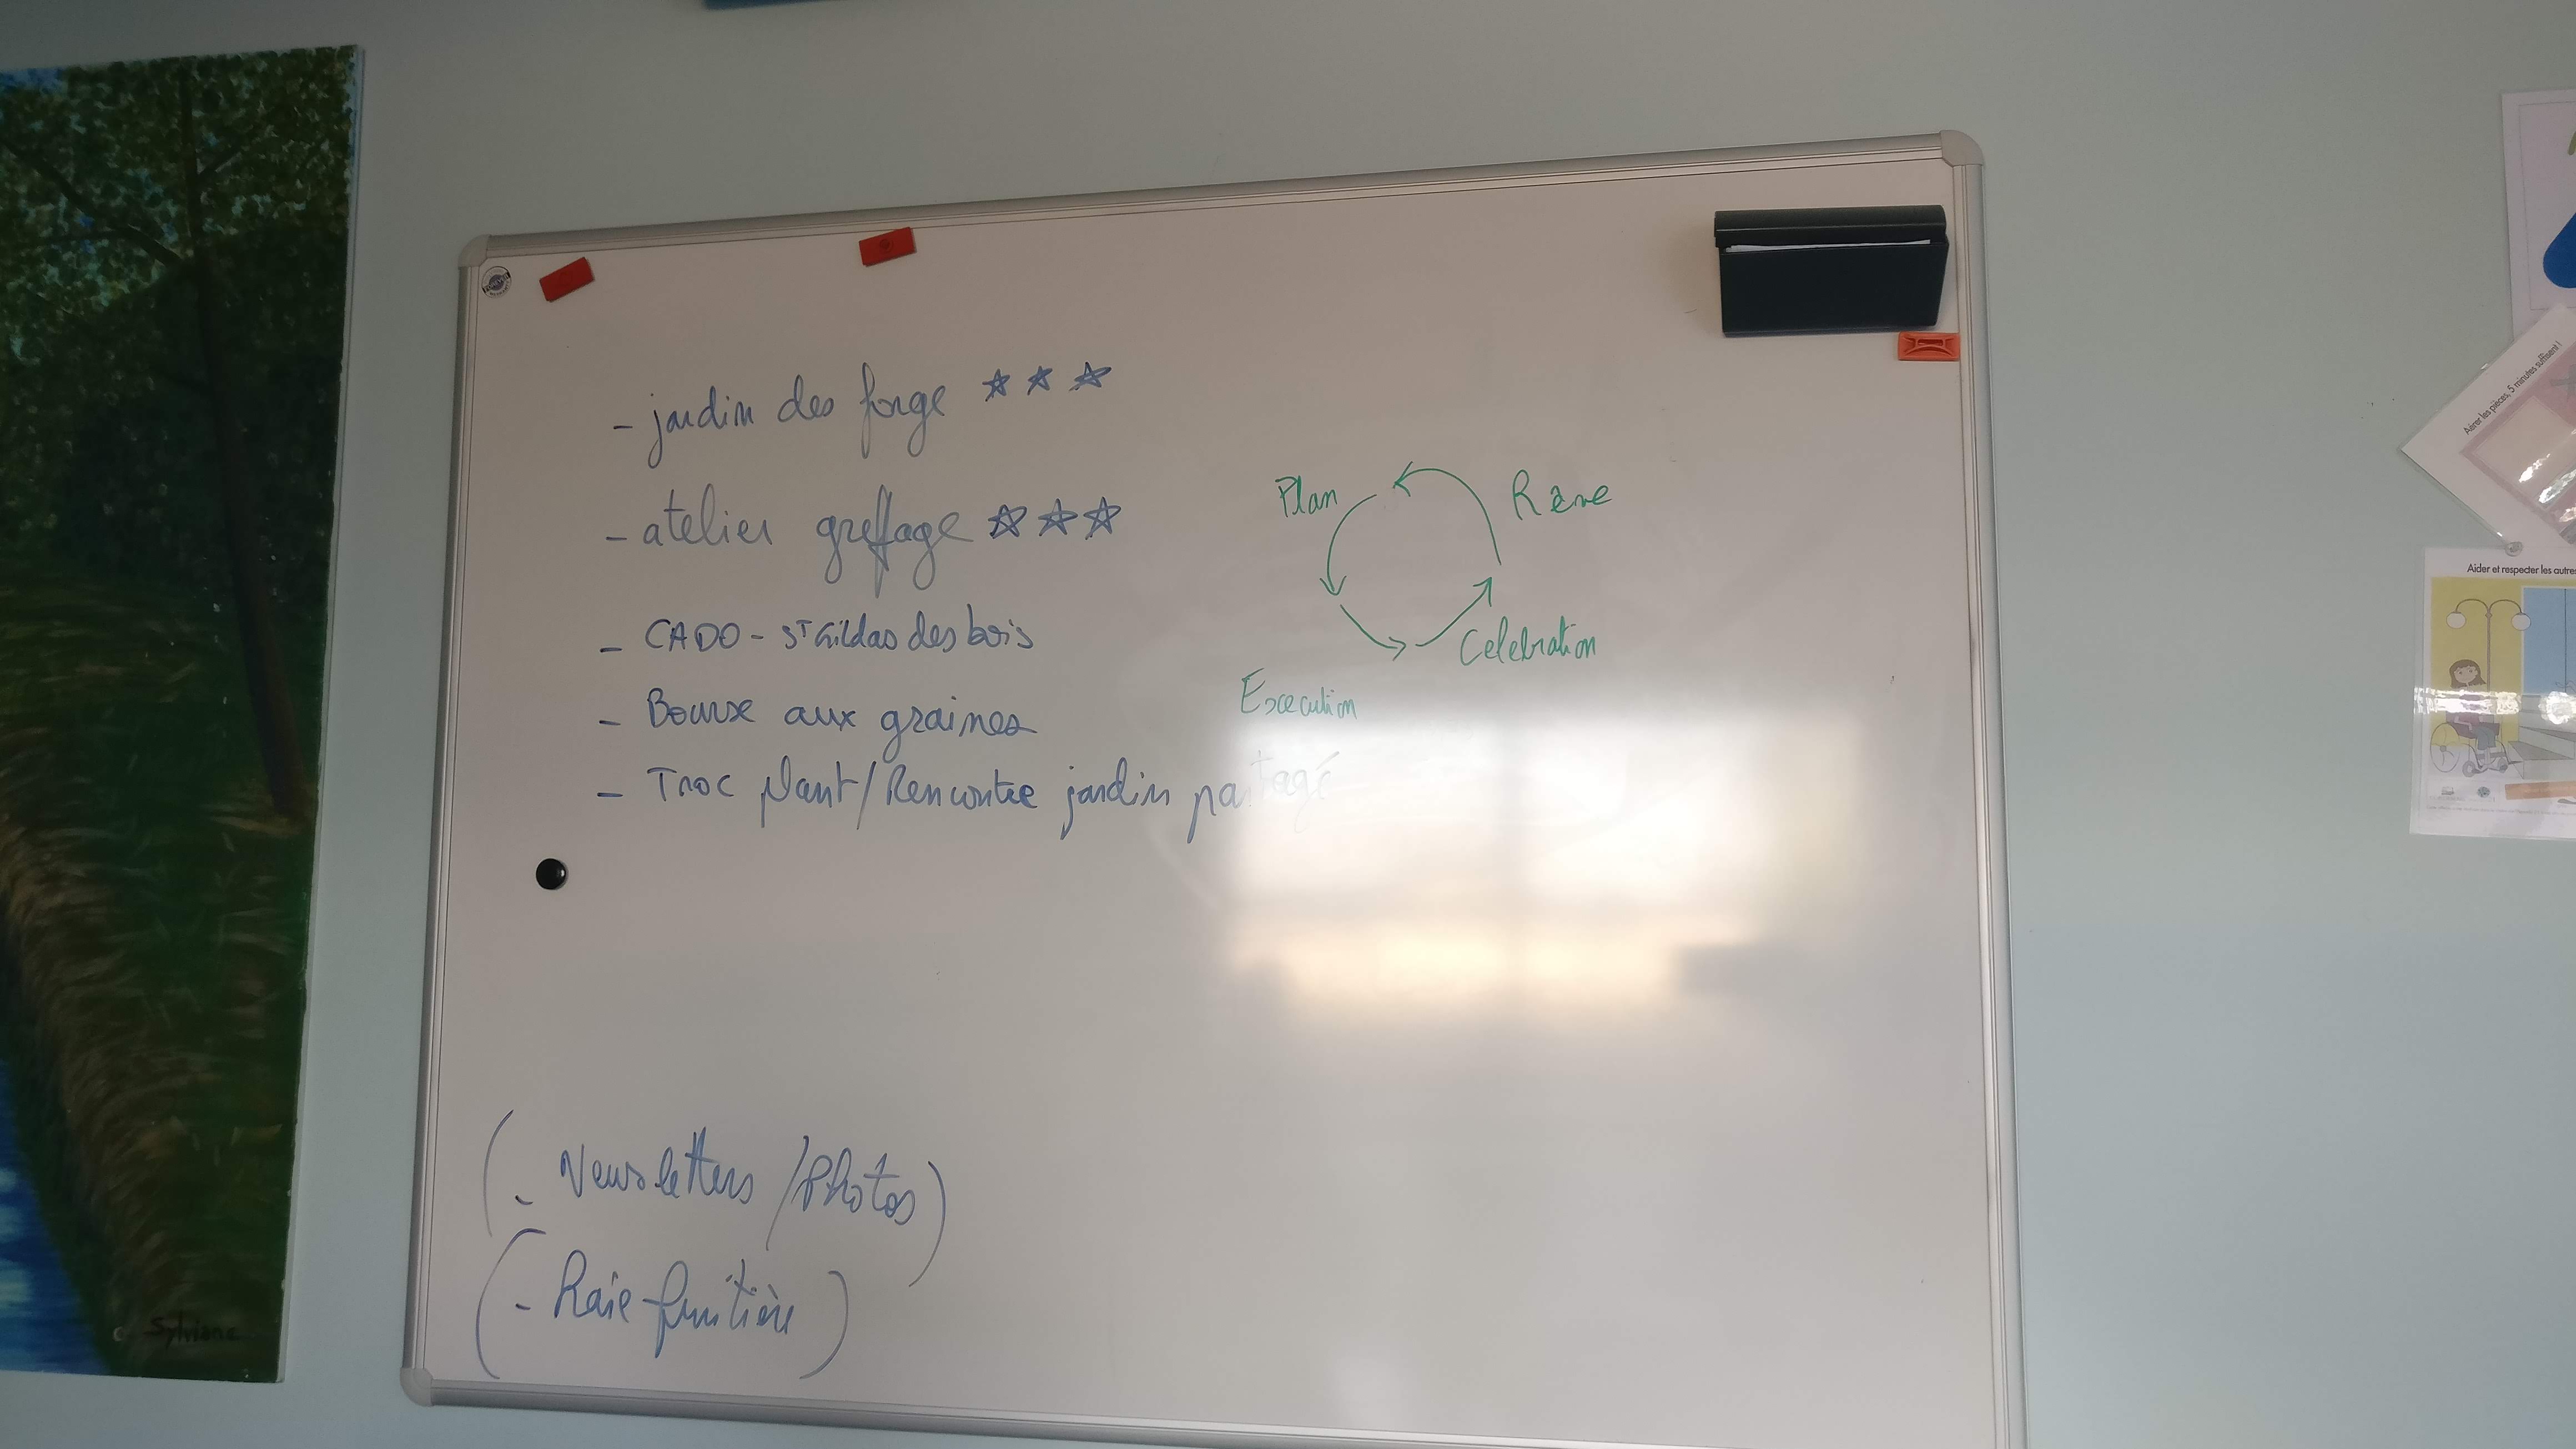 - jardin des forge ☆ ☆ ☆
- atelier greffage ☆ ☆ ☆
- CADO - St Gildas des bois
- Bourse aux graines
- Troc plant/Rencontre jardin partagé
Plan
Rêve
Celebration
Execution
(- Newsletters/Photos)
(- Haie fruitière)
Sylviane
Aérer les pièces, 5 minutes suffisent !
Aider et respecter les autres